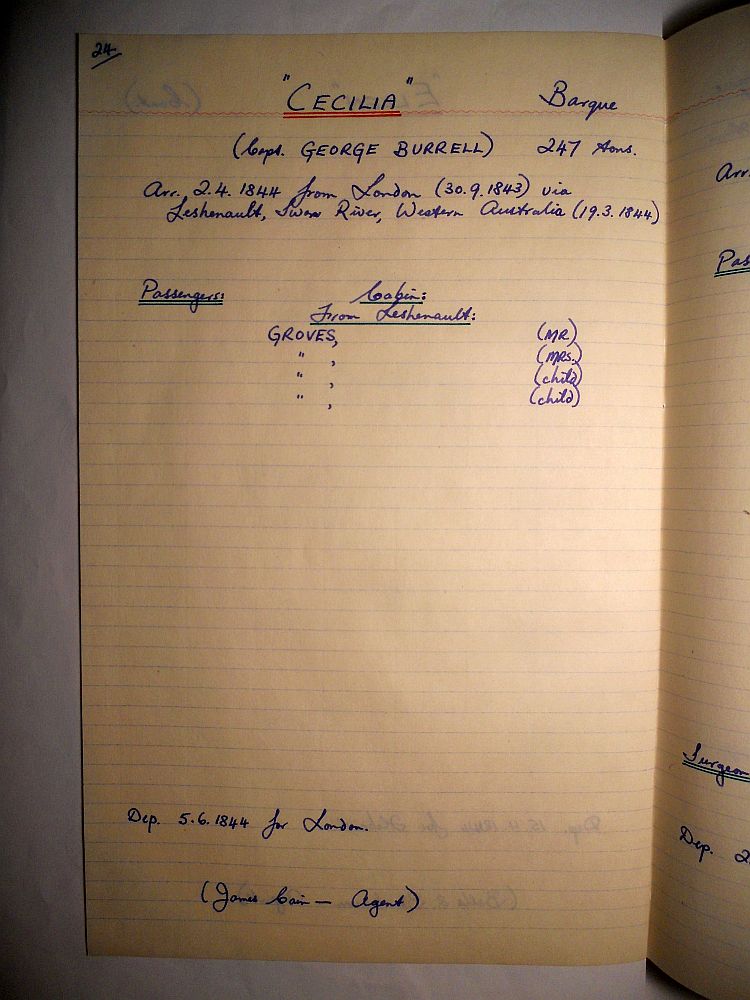 24
"CECILIA" Barque
(Capt. GEORGE BURRELL) 247 tons.
Arr. 2.4.1844 from London (30.9.1843) via
Leshenault, Swan River, Western Australia (19.3.1844)
Passengers: Cabin:
From Leshenault:
GROVES, (MR)
" , (MRS.)
" , (child)
" , (child)
Dep. 5.6.1844 for London.
(James Cain — Agent)
Arr.
Pas
Surgeon
Dep. 2